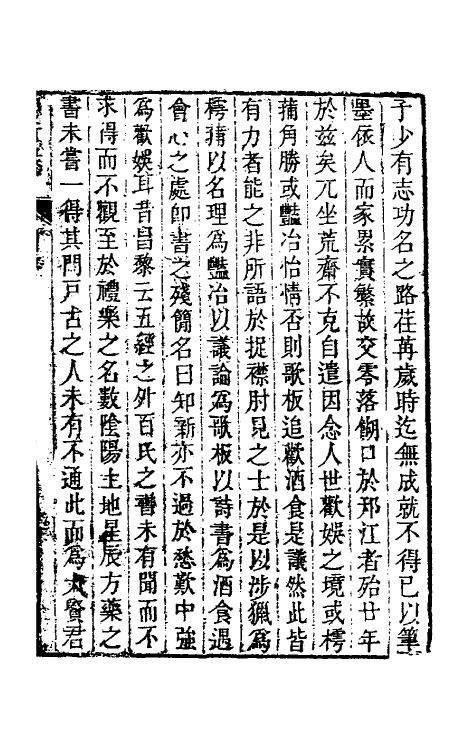 予少有志功名之路荏苒歲時迄無成就不得已以筆
墨依人而家累實繁故交零落餬口於邗江者殆廿年
於兹矣兀坐荒齋不克自遣因念人世歡娛之境或樗
蒱角勝或豔冶怡情否則歌板追歡酒食是議然此皆
有力者能之非所語於捉襟肘見之士於是以涉獵爲
樗蒱以名理爲豔冶以議論爲歌板以詩書爲酒食遇
會心之處卽書之殘簡名曰知新亦不過於愁歎中強
爲歡娛耳昔昌黎云五經之外百氏之書未有聞而不
求得而不觀至於禮樂之名數陰陽土地星辰方藥之
書未嘗一得其門戸古之人未有不通此而爲大賢君